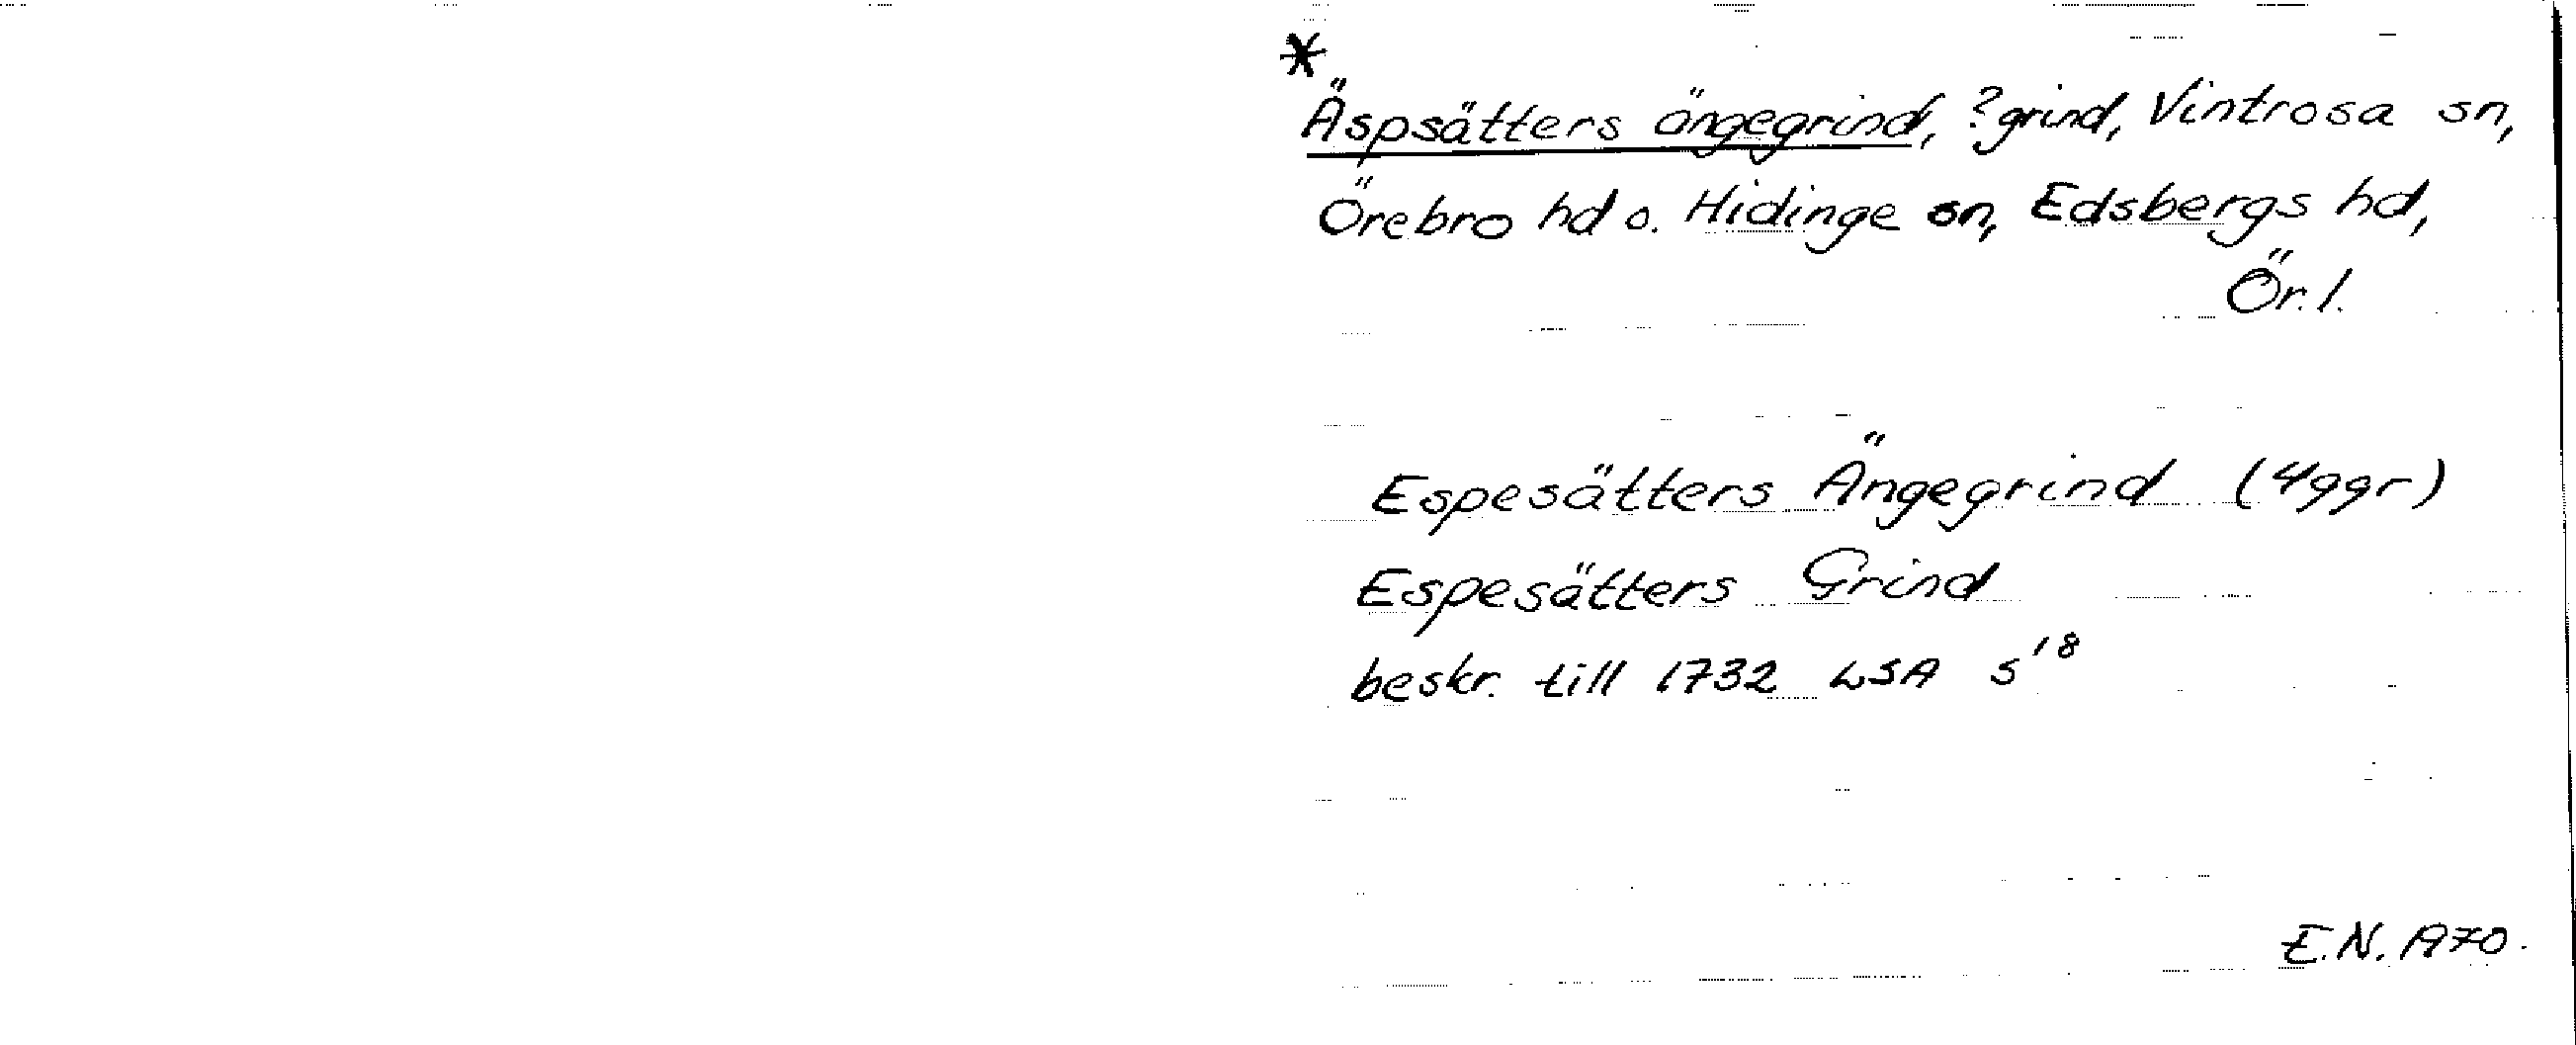 *
Äspsätters ängegrind, ?grind, Vintrosa sn,
Örebro hd o. Hidinge sn, Edsbergs hd,
Ör.l.
Espesätters Ängegrind (4ggr)
Espesätters Grind
beskr. till 1732 LSA S¹⁸
E.N. A70.